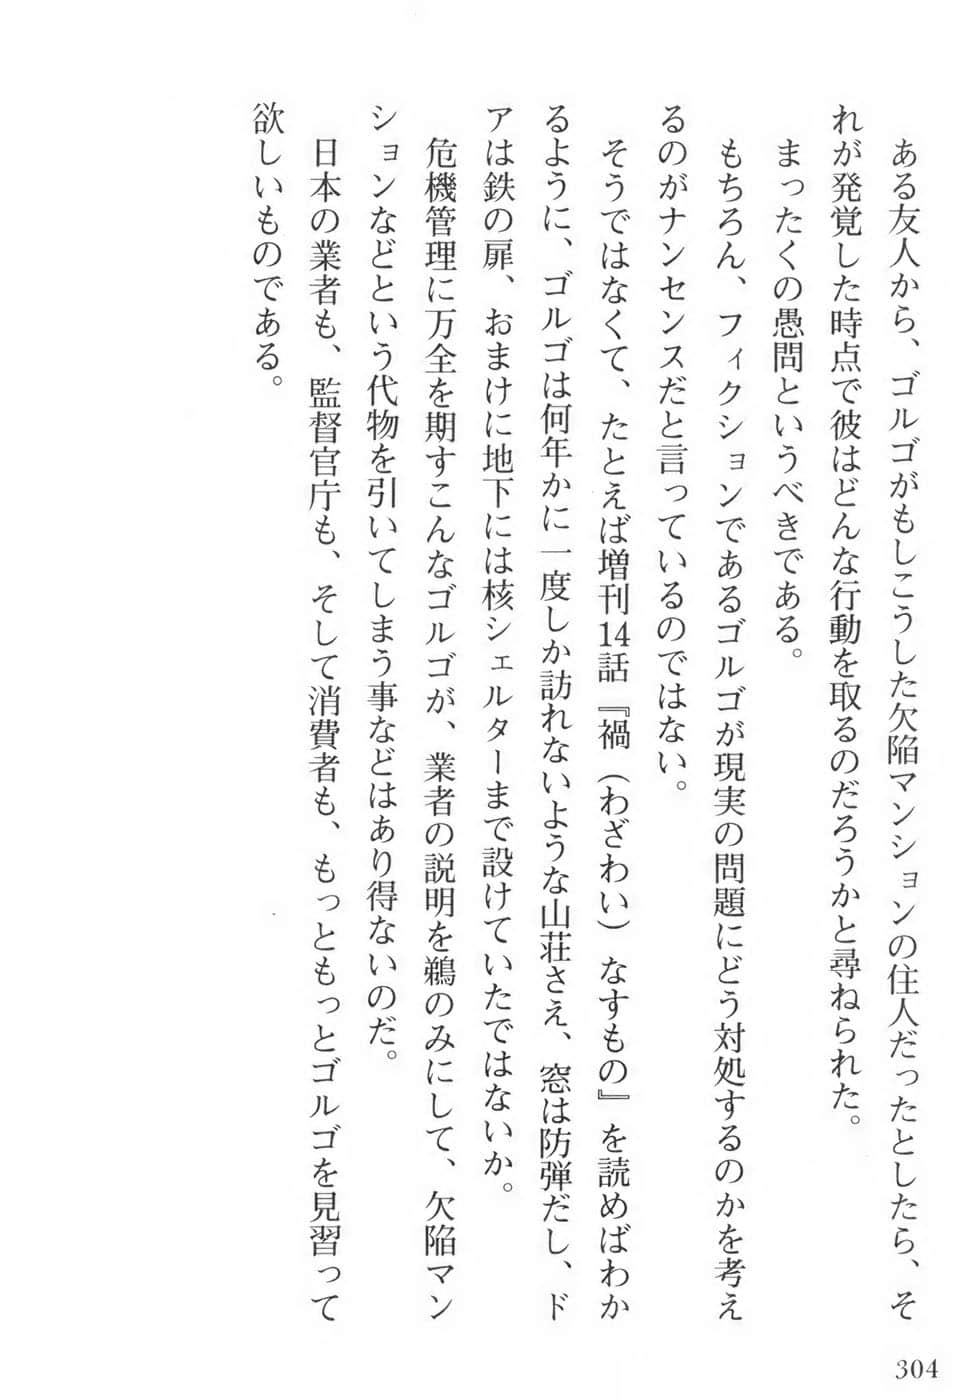 ある友人から、ゴルゴがもしこうした欠陥マンションの住人だったとしたら、そ
れが発覚した時点で彼はどんな行動を取るのだろうかと尋ねられた。
まったくの愚問というべきである。
もちろん、フィクションであるゴルゴが現実の問題にどう対処するのかを考え
るのがナンセンスだと言っているのではない。
そうではなくて、たとえば増刊14話『禍（わざわい）なすもの』を読めばわか
るように、ゴルゴは何年かに一度しか訪れないような山荘さえ、窓は防弾だし、ド
アは鉄の扉、おまけに地下には核シェルターまで設けていたではないか。
危機管理に万全を期すこんなゴルゴが、業者の説明を鵜のみにして、欠陥マン
ションなどという代物を引いてしまう事などはあり得ないのだ。
日本の業者も、監督官庁も、そして消費者も、もっともっとゴルゴを見習って
欲しいものである。
304